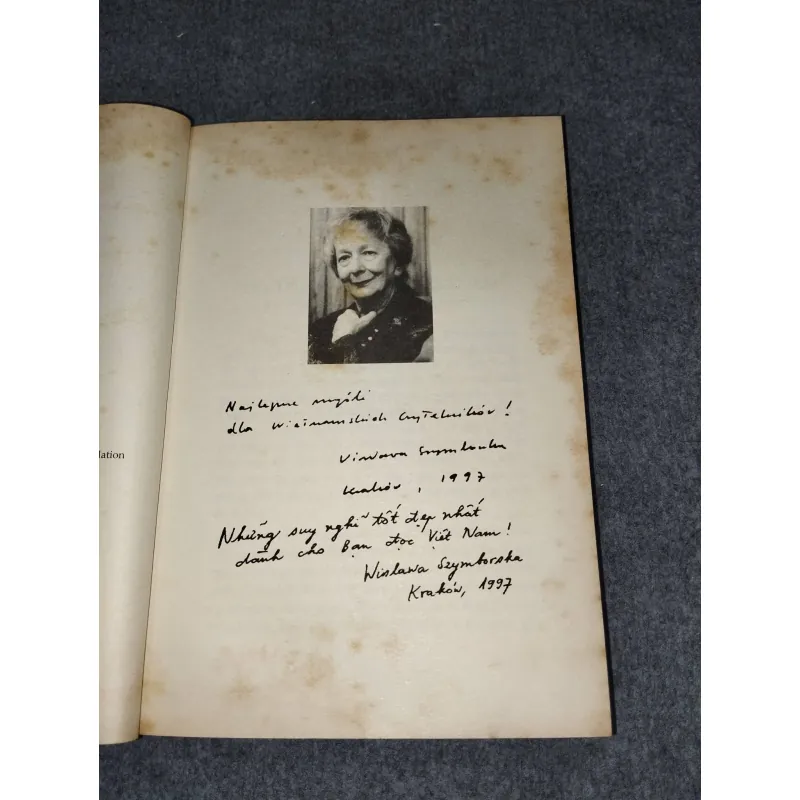 lation
Najlepsze myśli
dla wietnamskich czytelników!
Wisława Szymborska
Kraków, 1997
Những suy nghĩ tốt đẹp nhất
dành cho Bạn đọc Việt Nam!
Wislawa Szymborska
Kraków, 1997